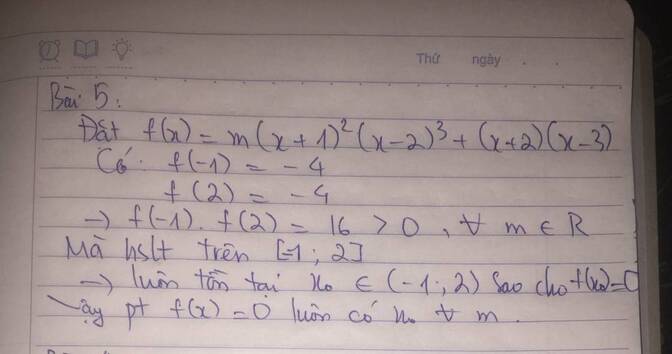 Thứ ngày . .
Bài 5:
Đặt f(x) = m(x+1)²(x-2)³ + (x+2)(x-3)
Có: f(-1) = -4
f(2) = -4
→ f(-1). f(2) = 16 > 0, ∀ m ∈ R
Mà hslt trên [-1; 2]
→ luôn tồn tại x₀ ∈ (-1; 2) sao cho f(x₀)=0
Vậy pt f(x) = 0 luôn có no ∀ m.